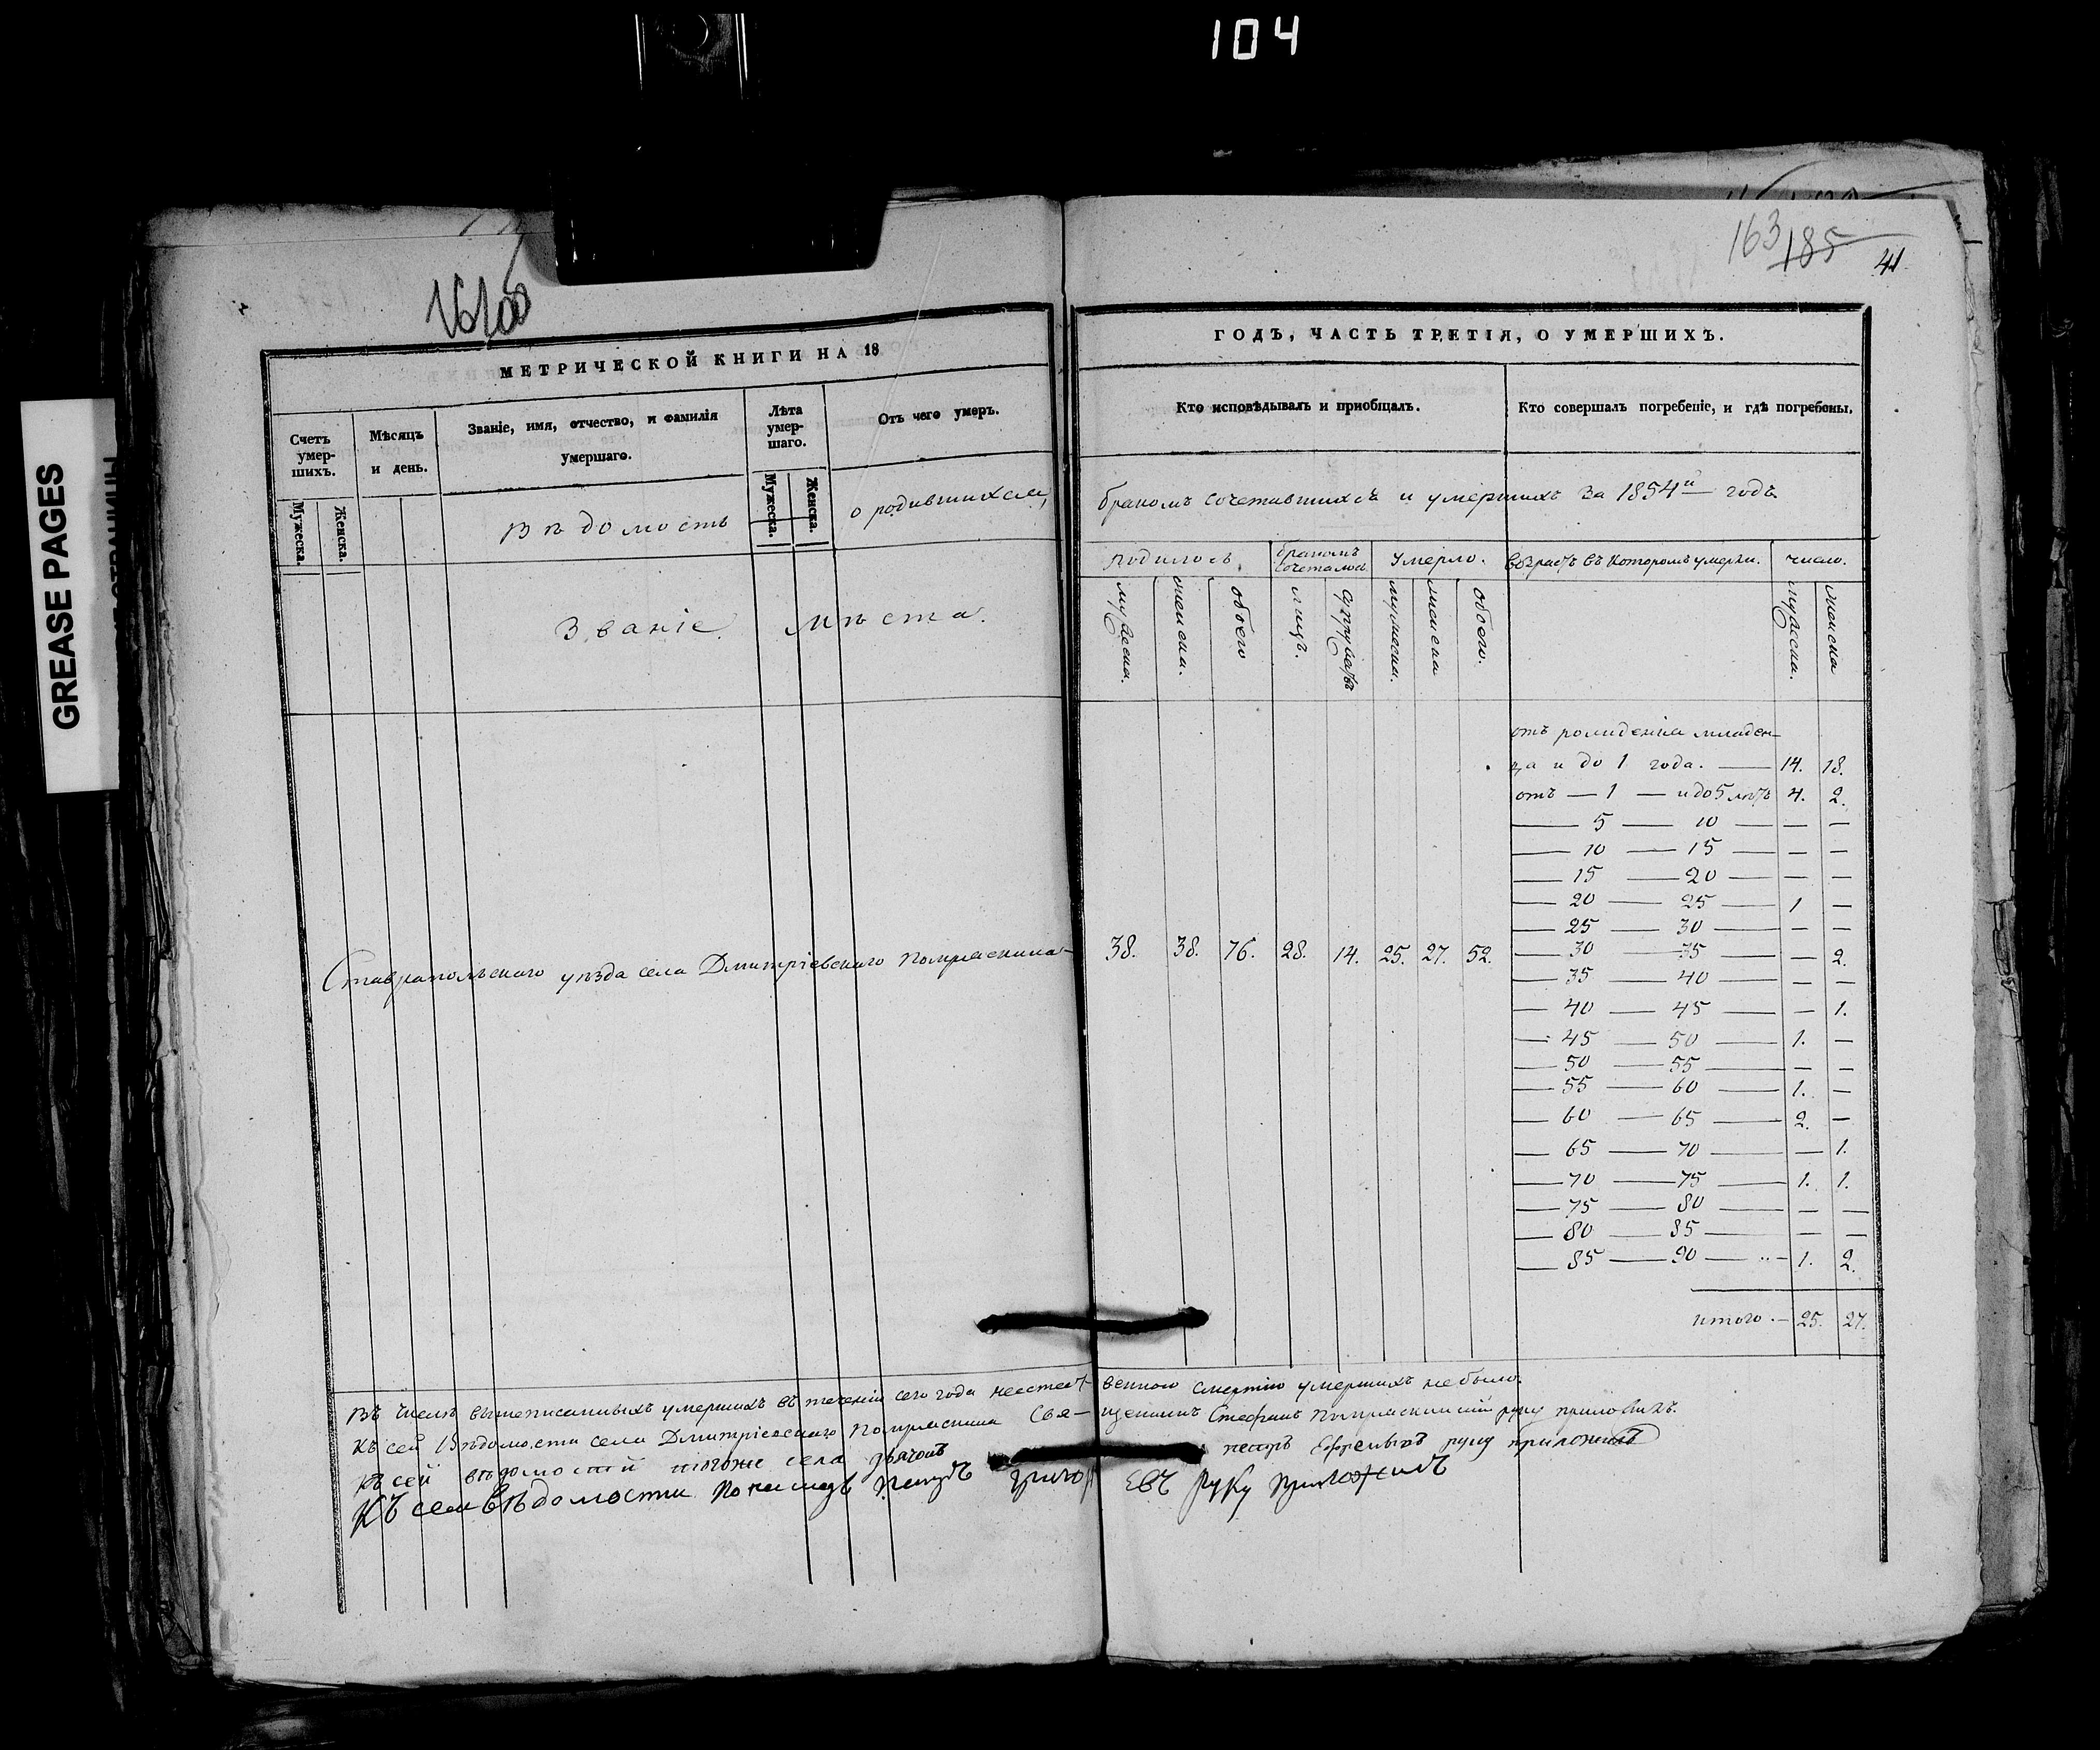 104
GREASE PAGES
163
185
41
МЕТРИЧЕСКОЙ КНИГИ НА 18
ГОДЪ, ЧАСТЬ ТРЕТІЯ, О УМЕРШИХЪ.
Счетъ умер-шихъ.
Мужеска.
Женска.
Мѣсяцъ и день.
Званіе, имя, отчество, и фамилія умершаго.
Лѣта умер-шаго.
Мужеска.
Женска.
Отъ чего умеръ.
Кто исповѣдывалъ и пріобщалъ.
Кто совершалъ погребеніе, и гдѣ погребены.
Вѣдомость о родившихся, бракомъ сочетавшихся и умершихъ за 1854й годъ
Званіе. Мѣста.
Родилось.
мужеска.
женска.
обоего
бракомъ сочеталось
лицъ.
супружествъ
Умерло.
мужеска.
женска
обоего.
возрастъ въ которомъ умерли.
число.
мужеска.
женска
Ставропольскаго уѣзда села Дмитріевскаго Помряскина
38. 38. 76. 28. 14. 25. 27. 52.
отъ рожденія младен-
ца и до 1 года. — 14. 18.
отъ — 1 — и до 5 лѣтъ 4. 2.
— 5 — 10 — — —
— 10 — 15 — — —
— 15 — 20 — — —
— 20 — 25 — 1 —
— 25 — 30 — — —
— 30 — 35 — — 2.
— 35 — 40 — — —
— 40 — 45 — — 1.
— 45 — 50 — 1. —
— 50 — 55 — — —
— 55 — 60 — 1. —
— 60 — 65 — 2. —
— 65 — 70 — — 1.
— 70 — 75 — 1. 1.
— 75 — 80 — — —
— 80 — 85 — — —
— 85 — 90 — 1. 2.
итого. — 25. 27.
Въ числѣ вышеписанныхъ умершихъ въ теченіи сего года неестест венною смертію умершихъ не было.
Къ сей Вѣдомости села Дмитріевскаго Помряскина Свя- щенникъ Стефанъ Помряскинскій руку приложилъ.
Къ сей вѣдомости тогоже села дьячокъ руку приложилъ
Къ сей вѣдомости руку приложилъ